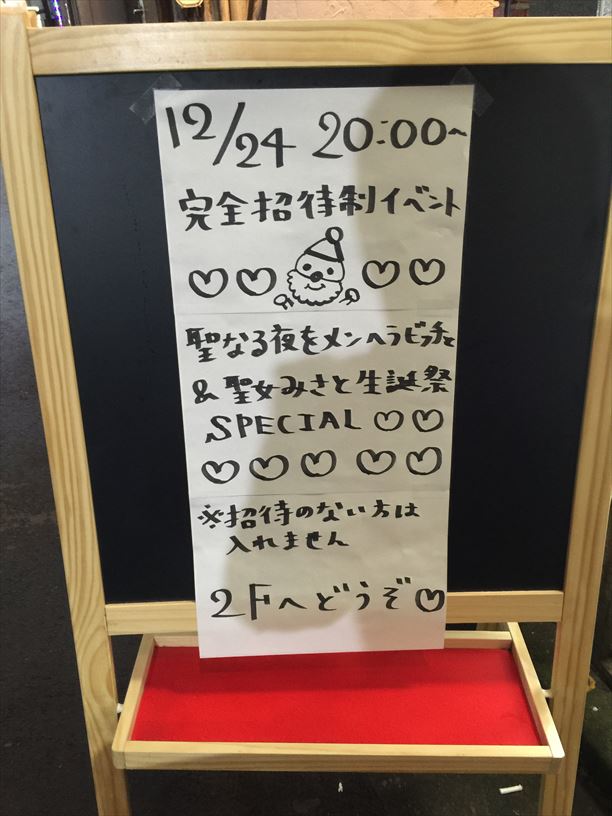 12/24 20:00~
完全招待制イベント
♡♡♡♡
聖なる夜をメンヘラビッチと
&聖女みさと生誕祭
SPECIAL♡♡
♡♡♡♡♡
※招待のない方は
入れません
2Fへどうぞ♡